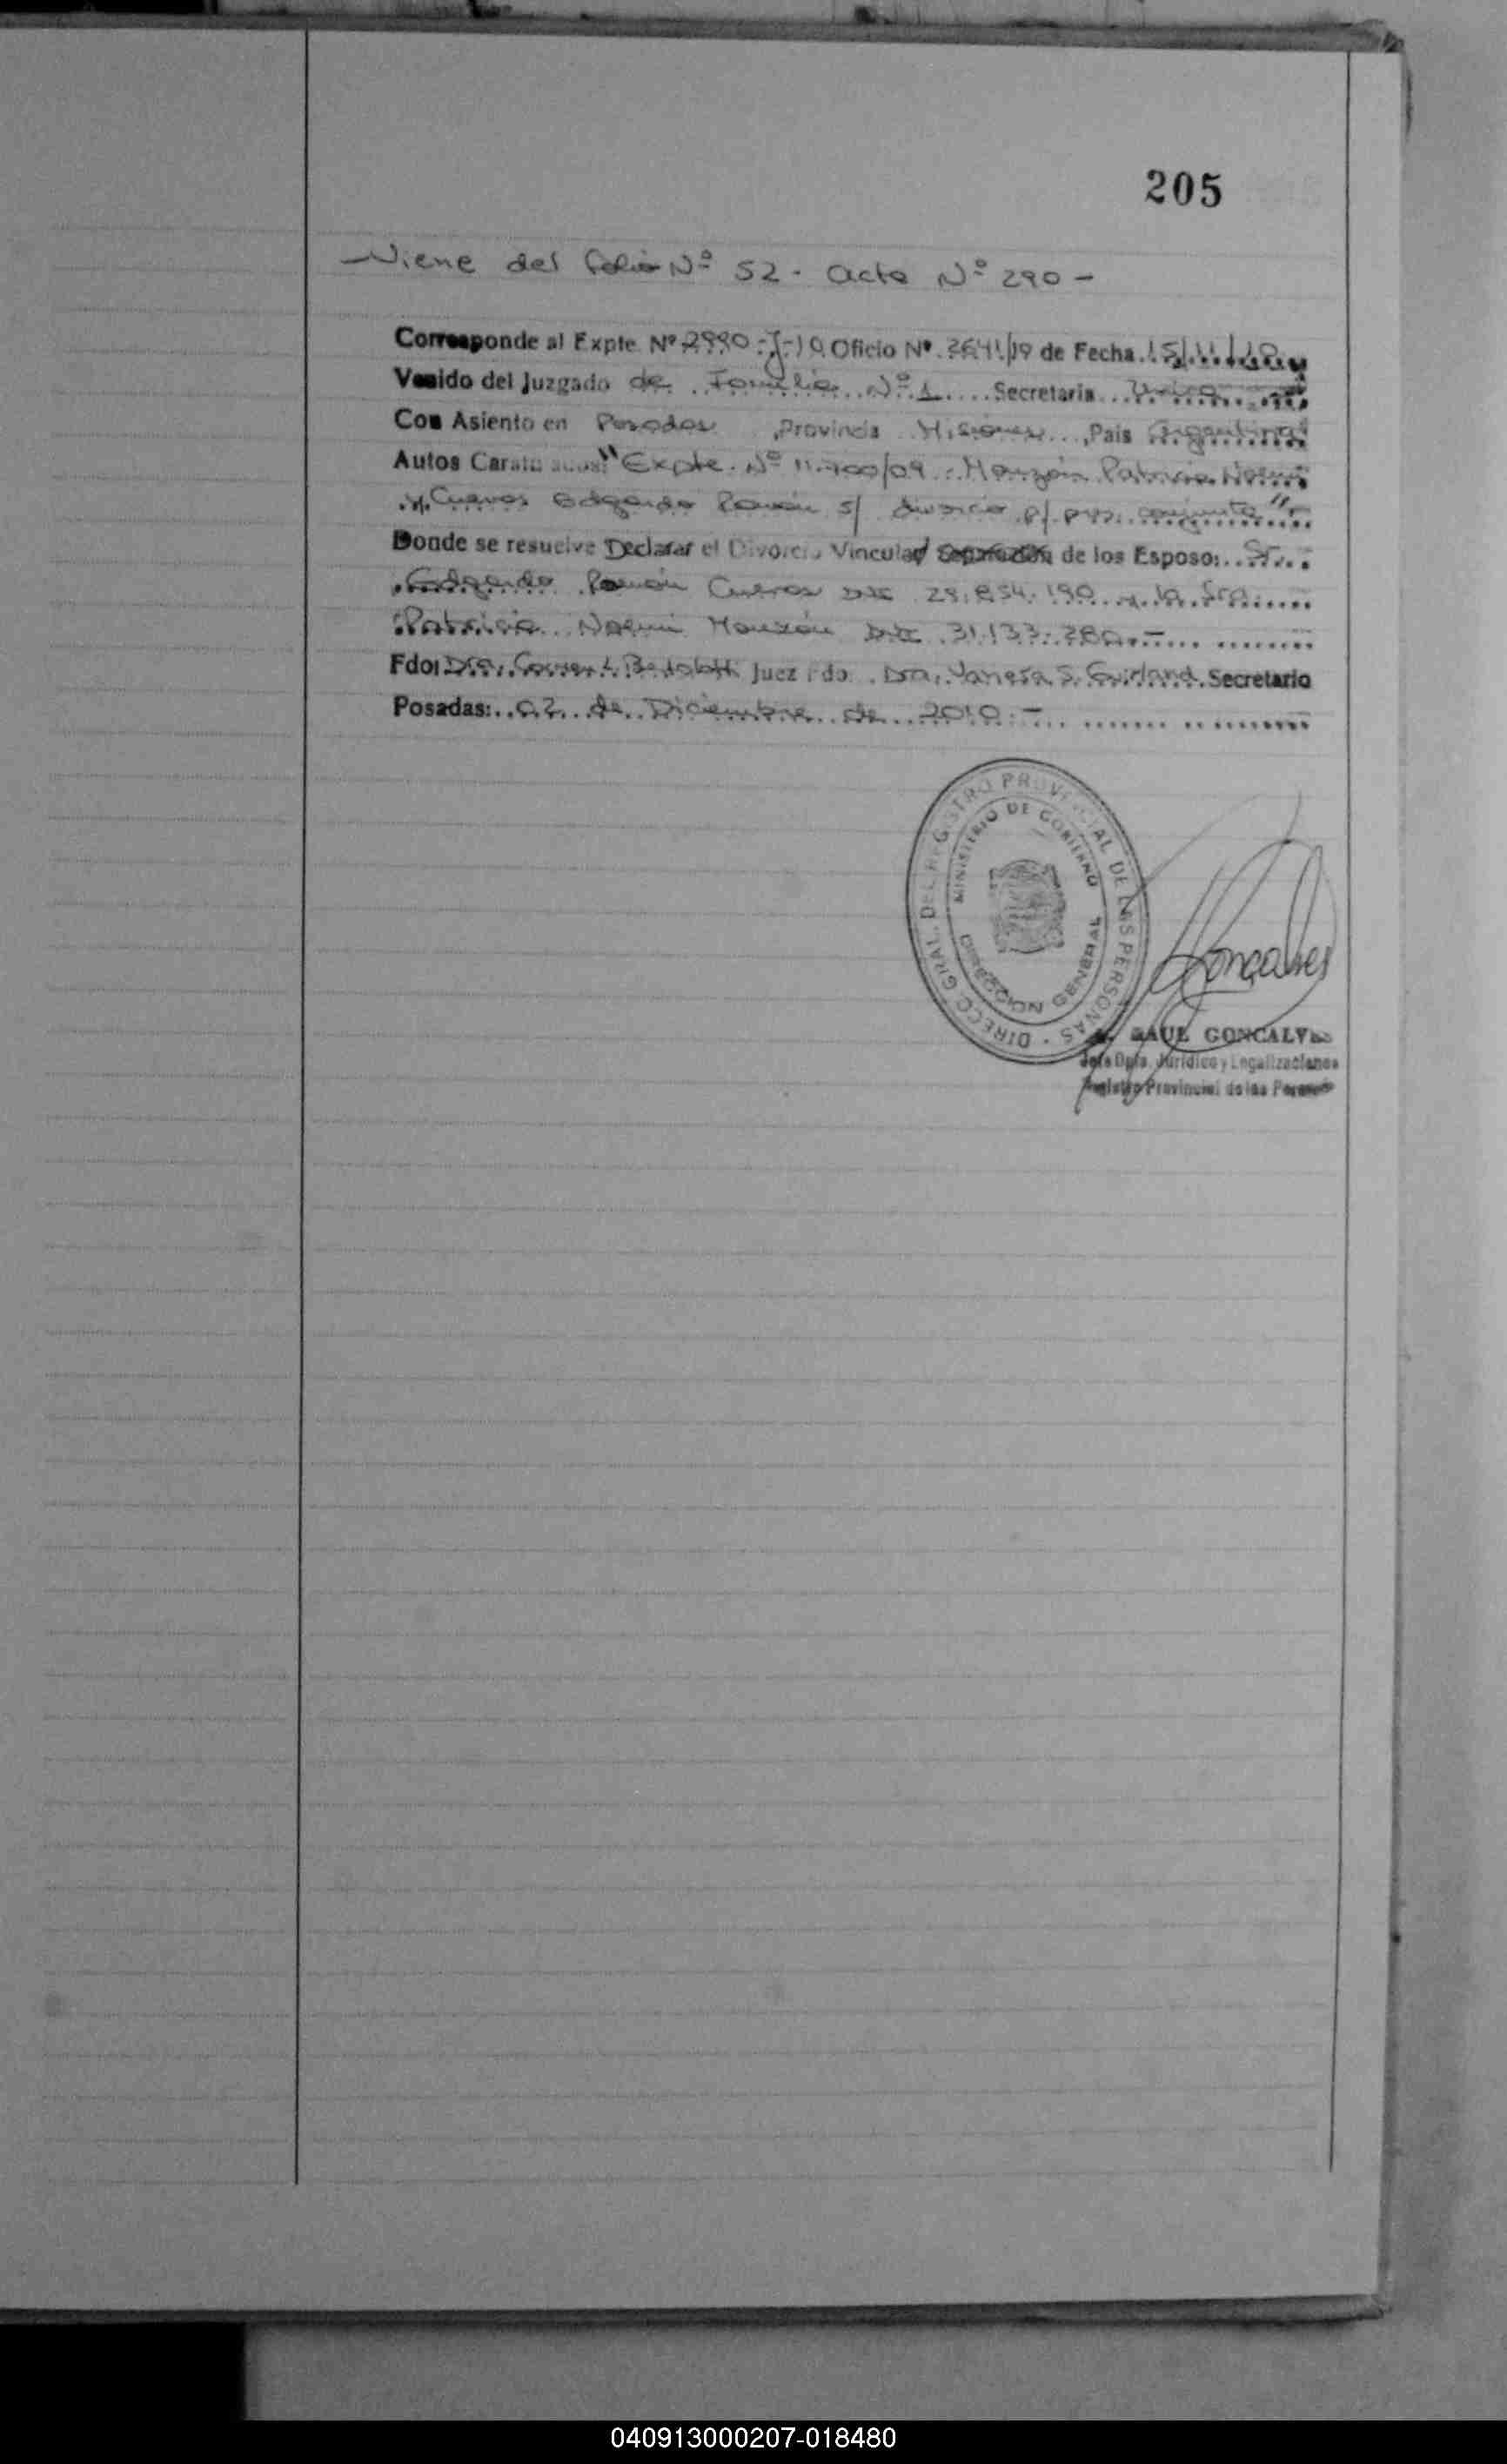 205
- Viene del folio Nº 52 - acta Nº 290 -
Corresponde al Expte. Nº 2990-J-10 Oficio Nº 3641/19 de Fecha 15/11/10
Venido del Juzgado de Familia Nº 1 Secretaria Unica
Con Asiento en Posadas, Provincia Misiones, Pais Argentina
Autos Caratulados: "Expte. Nº 11.700/09 - Monzón Patricia Noemi
y Cuevas Edgardo Ramón s/ divorcio p/ pres. conjunta"
Donde se resuelve Declarar el Divorcio Vincular de los Esposo: Sr.
Edgardo Ramón Cuevas DNI 29.854.190 y la Sra.
Patricia Noemi Monzón DNI 31.133.280.-
Fdo: Dra. Carmen L. Bertolotti Juez Fdo. Dra. Vanesa S. Guirland Secretario
Posadas: 02 de Diciembre de 2010.-
DIRECC. GRAL. DEL REGISTRO PROVINCIAL DE LAS PERSONAS
MINISTERIO DE GOBIERNO
DIRECCION GENERAL
Gonçalves
RAUL GONCALVES
Jefe Dpto. Jurídico y Legalizaciones
Registro Provincial de las Personas
040913000207-018480